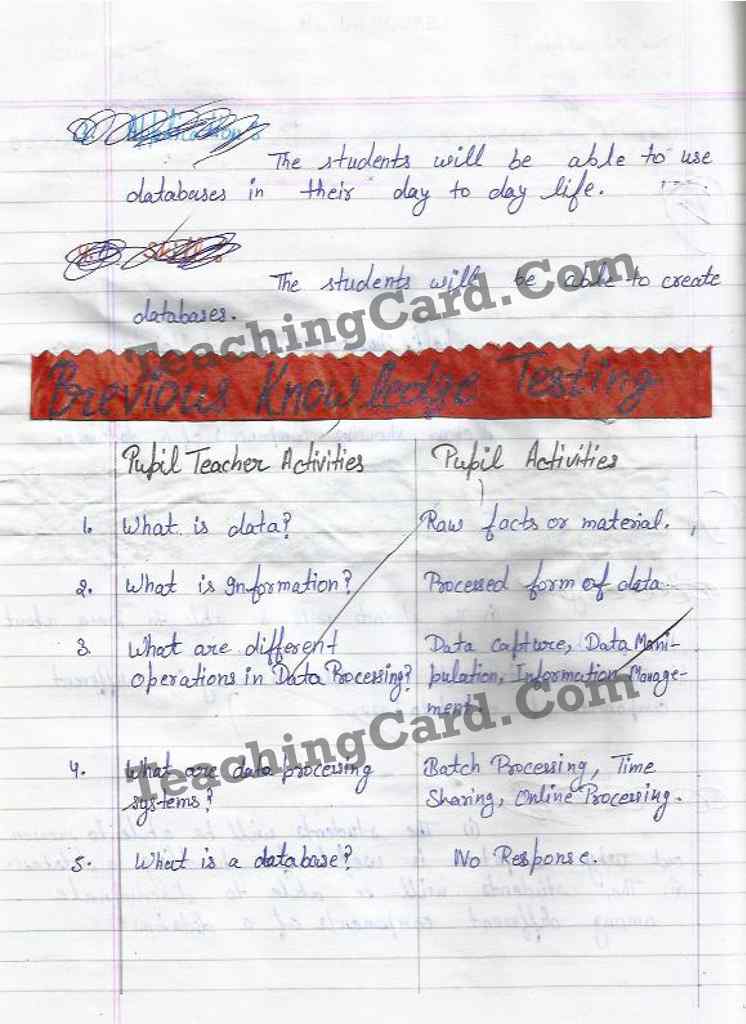 The students will be able to use
databases in their day to day life.
The students will be able to create
databases.
TeachingCard.Com
Brevious Knowledge Testing
Pupil Teacher Activities Pupil Activities
1. What is data? Raw facts or material.
2. What is Information? Processed form of data.
3. What are different Data capture, Data Mani-
operations in Data Processing? pulation, Information Manage-
ment.
TeachingCard.Com
4. What are data processing Batch Processing, Time
systems? Sharing, Online Processing.
5. What is a database? No Response.